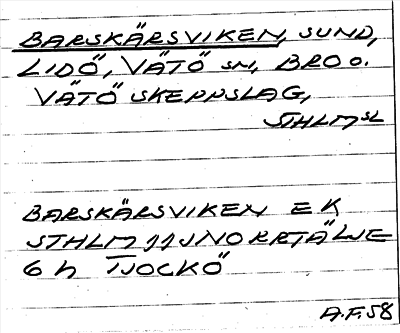 BARSKÄRSVIKEN, SUND,
LIDÖ, VÄTÖ sn, BRO o.
VÄTÖ SKEPPSLAG,
STHLM SL
BARSKÄRSVIKEN EK
STHLM 11J NORRTÄLJE
6 h TJOCKÖ
A.F. 58